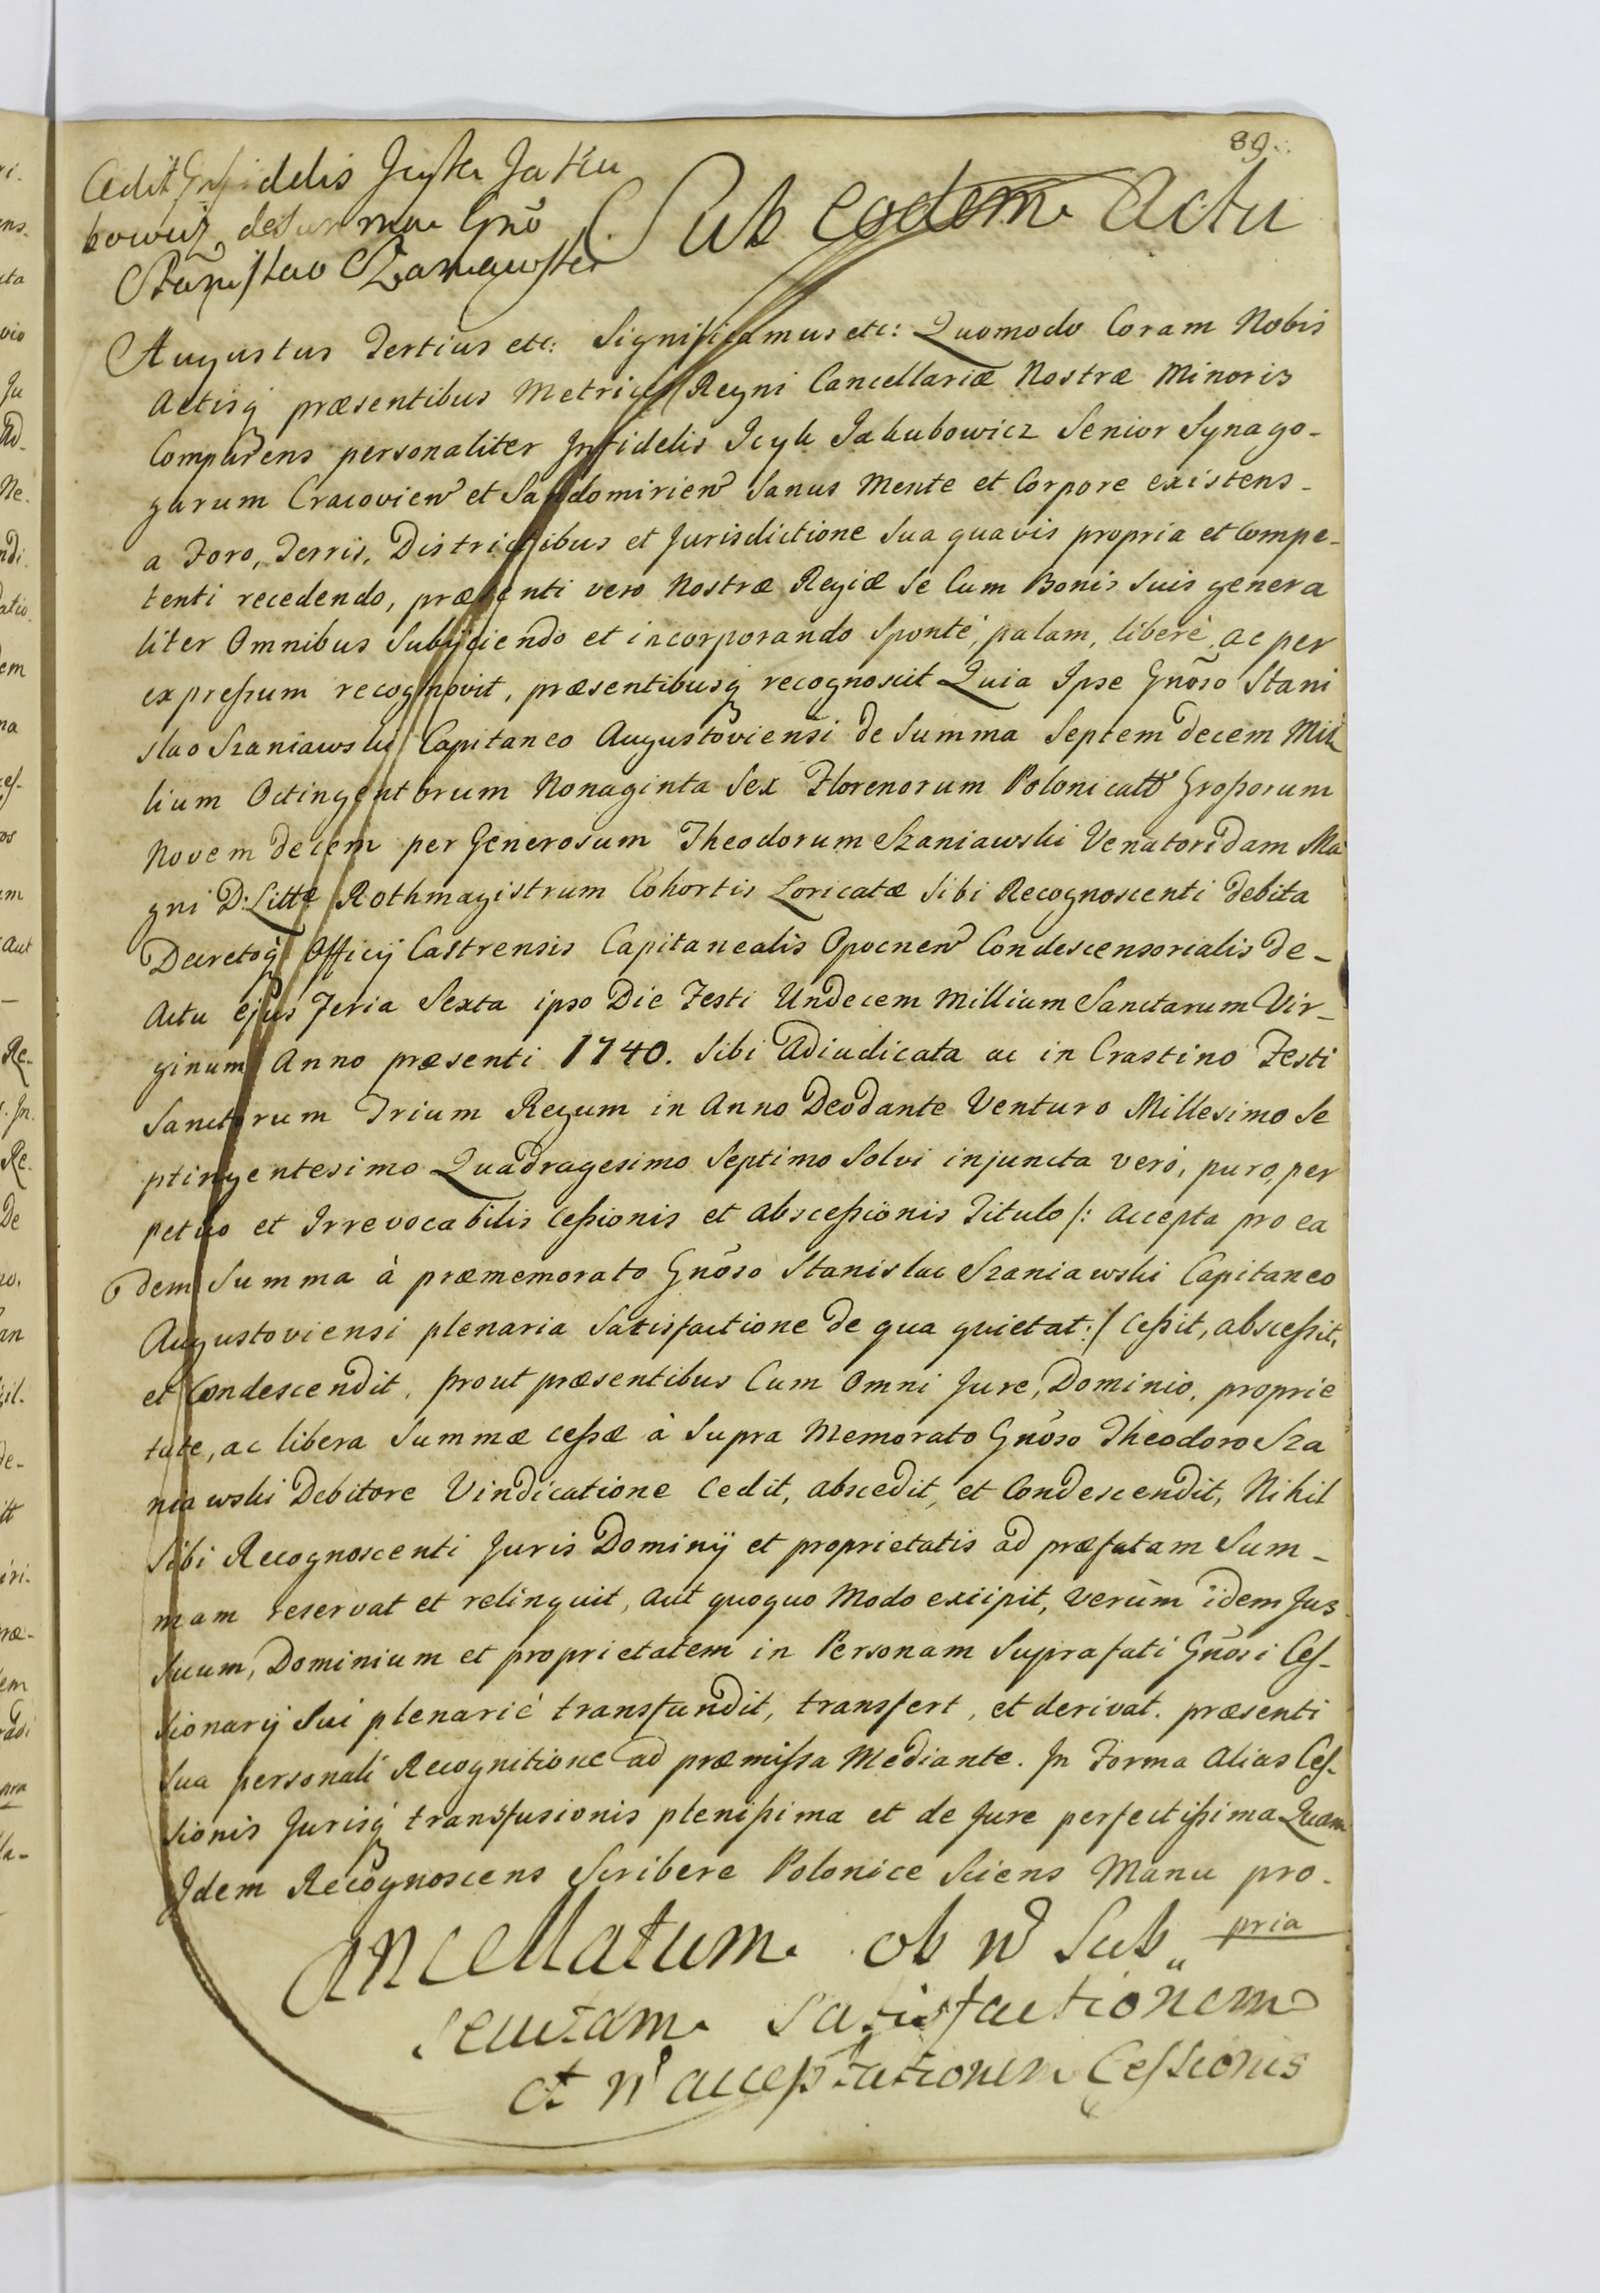 89.
Cedit Infidelis Icyk Jaku
bowicz de Summa Gnõ
Stanislao Szaniawski
Sub eodem Actu
Augustus Tertius etc: Significamus etc: Quomodo Coram Nobis
Actisq præsentibus Metrices Regni Cancellariæ Nostræ Minoris
Comparens personaliter Infidelis Icyk Jakubowicz Senior Synago-
garum Cracovien et Sandomirien Sanus Mente et Corpore existens-
a Foro, Terris, Districtibus et Jurisdictione Sua quavis propria et Compe-
tenti recedendo, præsenti vero Nostræ Regiæ Se Cum Bonis Suis genera
liter Omnibus Subijciendo et incorporando Sponté, palam, liberè, ac per
expreſsum recognovit, præsentibusq recognoscit Quia Ipse Gnõso Stani
slao Szaniawski Capitaneo Augustoviensi de Summa Septem decem Mil
lium Octingentorum Nonaginta Sex Florenorum Polonicaℓℓ Groſsorum
Novem decem per Generosum Theodorum Szaniawski Venatoridam Ma
gni D: Littæ Rothmagistrum Cohortis Loricatæ Sibi Recognoscenti debita
Decretoq Officij Castrensis Capitanealis Opocnen Condescensorialis de-
Actu ejus Feria Sexta ipso Die Festi Undecem Millium Sanctarum Vir-
ginum Anno præsenti 1740. Sibi Adiudicata ac in Crastino Festi
Sanctorum Trium Regum in Anno Deodante Venturo Millesimo Se
ptingentesimo Quadragesimo Septimo Solvi injuncta verò, puro, per
petuo et Irrevocabilis Ceſsionis et absceſsionis Titulo /: accepta pro ea
dem Summa à præmemorato Gnõso Stanislao Szaniawski Capitaneo
Augustoviensi plenaria Satisfactione de qua quietat :/ Ceſsit, absceſsit,
et Condescendit, prout præsentibus Cum Omni Jure, Dominio, proprie
tate, ac libera Summæ ceſsæ à Supra Memorato Gnõso Theodoro Sza
niawski Debitore Vindicatione Cedit, abscedit, et Condescendit, Nihil
Sibi Recognoscenti Juris Dominij et proprietatis ad præfatam Sum-
mam reservat et relinquit, aut quoquo Modo excipit, verùm idem Jus
Suum, Dominium et proprietatem in Personam Suprafati Gnõsi Ceſ-
sionarij Sui plenariè transfundit, transfert, et derivat. præsenti
Sua personali Recognitione ad præmiſsa Mediante. In Forma Alias Ceſ-
sionis Jurisq transfusionis pleniſsima et de Jure perfectiſsima Quam
Idem Recognoscens Scribere Polonice Sciens Manu pro-
pria
Cancellatum ob n Sub„
secutam Satisfactionem
et n acceptationem Ceſsionis